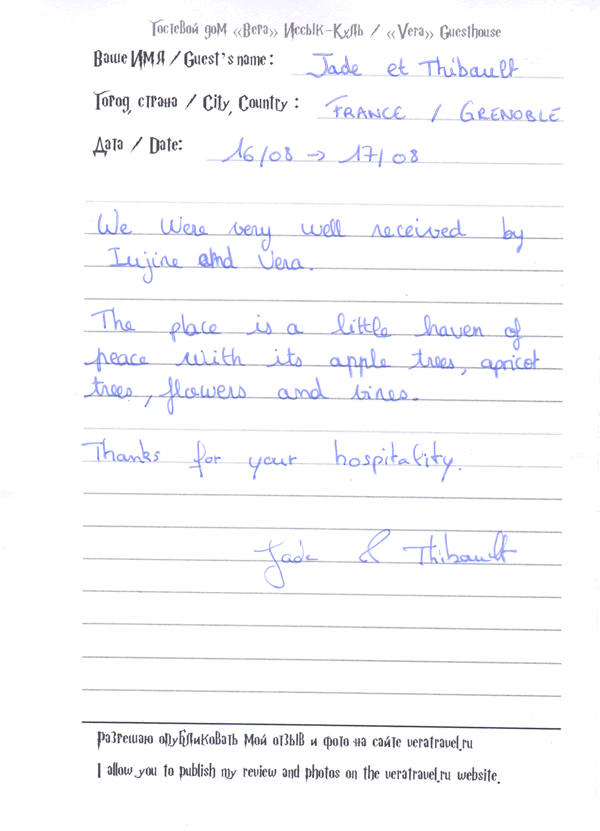 Гостевой дом «Вера» Иссык-Куль / «Vera» Guesthouse
Ваше ИМЯ / Guest's name: Jade et Thibault
Город, страна / City, Country: FRANCE / GRENOBLE
Дата / Date: 16/08 → 17/08
We were very well received by
Iujine and Vera.
The place is a little haven of
peace with its apple trees, apricot
trees, flowers and vines.
Thanks for your hospitality.
Jade & Thibault
Разрешаю опубликовать мой отзыв и фото на сайте veratravel.ru
I allow you to publish my review and photos on the veratravel.ru website.